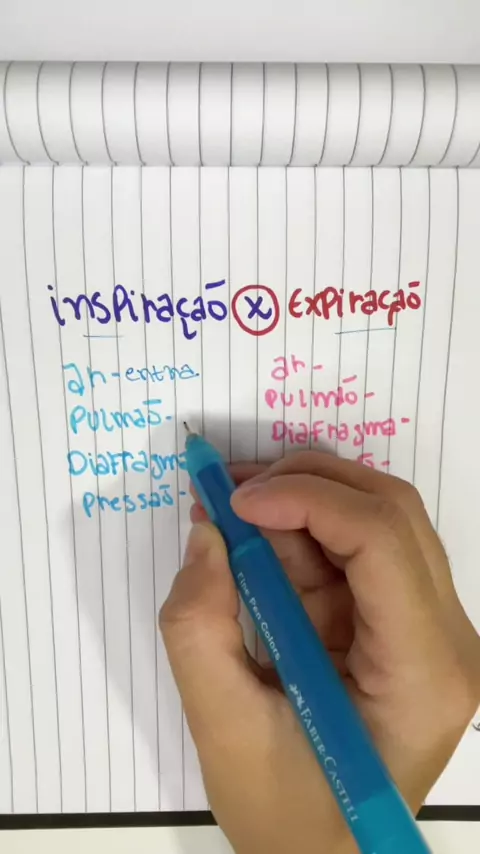 inspiração x Expiração
ar - entra
Pulmão -
Diafragma
Pressão -
ar -
Pulmão -
Diafragma -
Fine Pen Colors
FABER-CASTELL